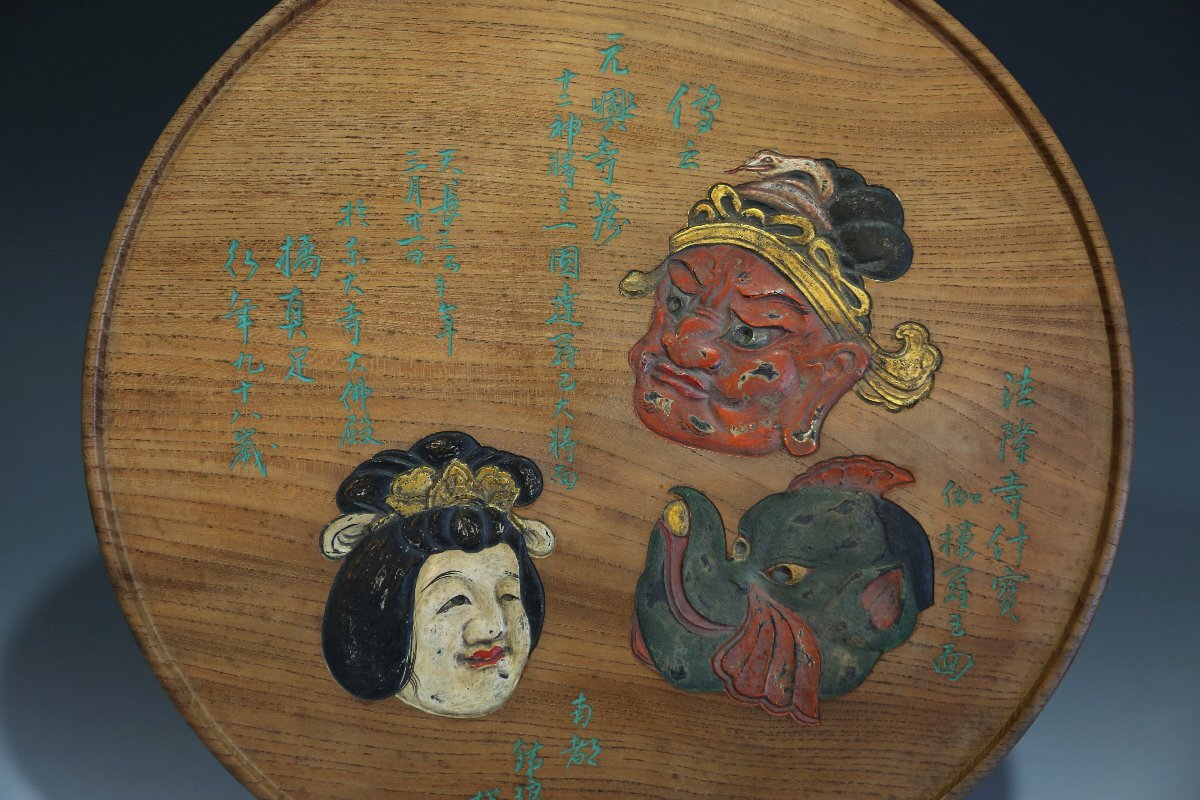 法隆寺什寳
伽楼羅王面
傳云
元興寺蔵
十二神将之一因達羅己大将面
天長三丙午年
三月廿一日
於东大寺大佛殿
橘真足
行年九十八歳
南都